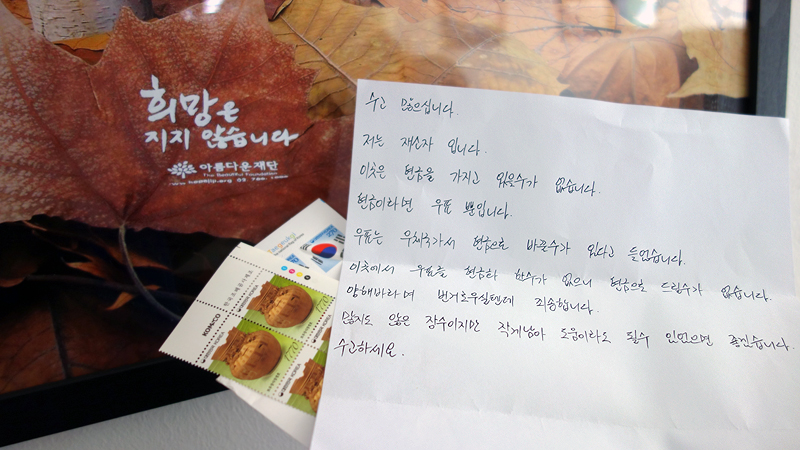 희망은
지지 않습니다
아름다운재단
The Beautiful Foundation
수고 많으십니다.
저는 재소자 입니다.
이곳은 현금을 가지고 있을수가 없습니다.
현금이라면 우표 뿐입니다.
우표는 우체국가서 현금으로 바꿀수가 있다고 들었습니다.
이곳에서 우표를 현금화 할수가 없으니 현금으로 드릴수가 없습니다.
양해바라며 번거로우실텐데 죄송합니다.
많지도 않은 장수이지만 작게남아 도움이라도 될수 있었으면 좋겠습니다.
수고하세요.
KOMSCO